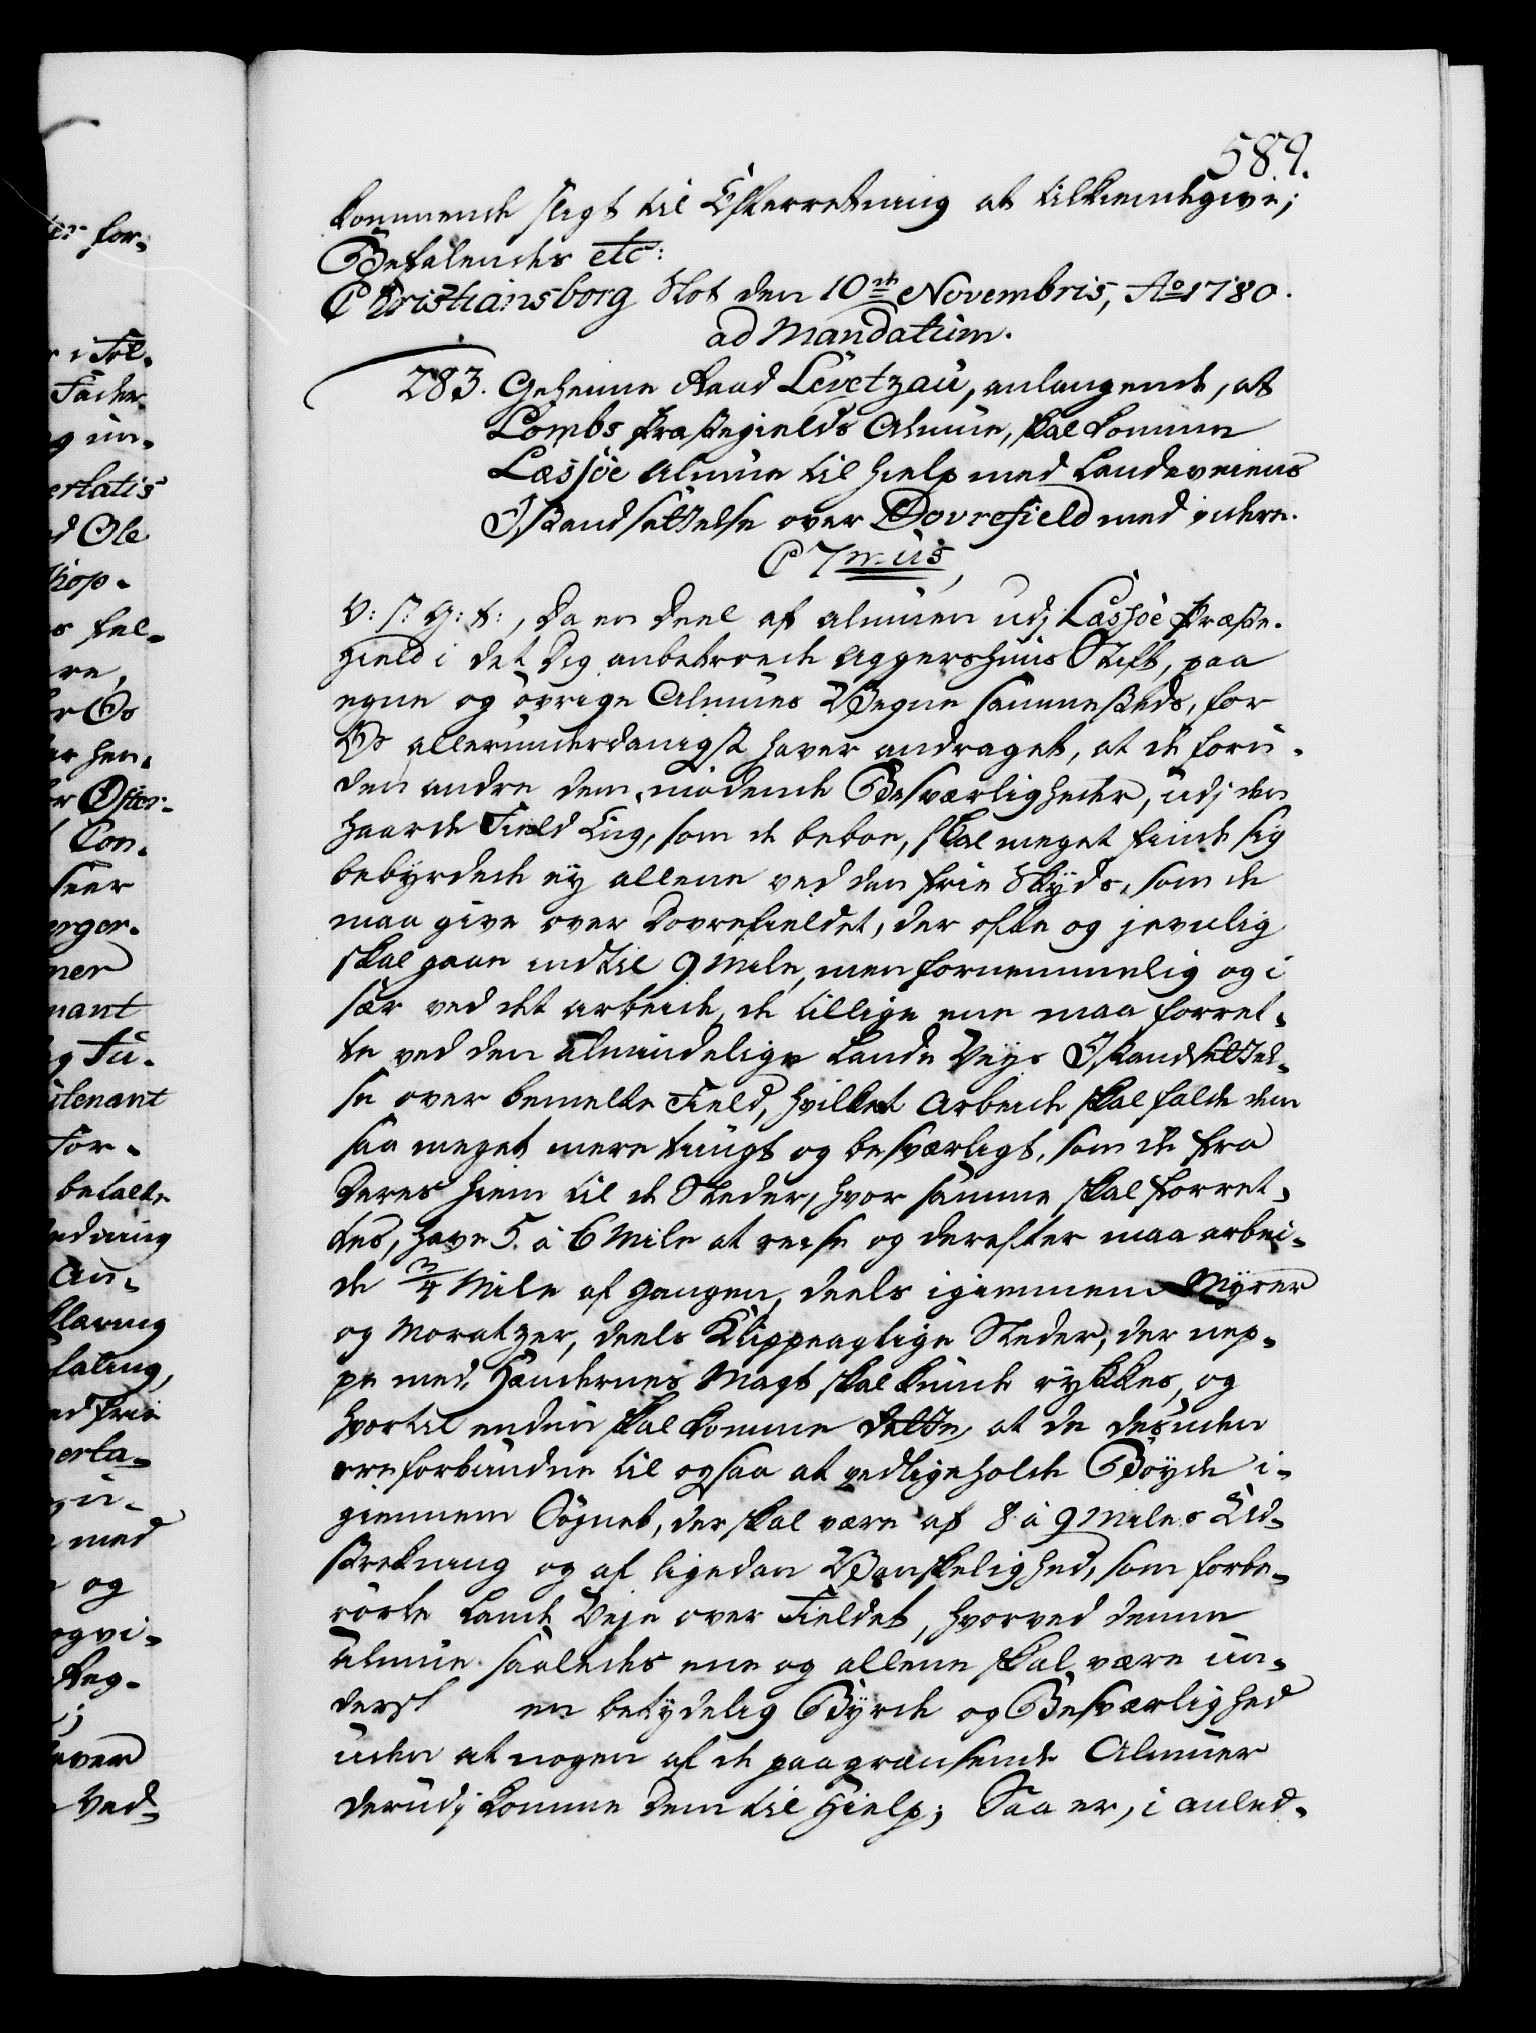 589.
kommende sligt til Efterretning at tilkiendegive;
Befalendes etc:
Christiansborg Slot den 10de Novembris, Ao 1780.
ad Mandatum.
283. Geheime Raad Levetzau, anlangende, at
Lombs Præstegields Almue, skal komme
Læssøe Almue til Hielp med Landeveiens
Istandsættelse over Dovrefield med videre.
C 7mus,
V: S: G: T:, Da en Deel af Almuen udj Læssøe Præste-
gield i det Dig anbetroede Aggershuus Stift, paa
egne og øvrige Almues Vegne sammesteds, for
Os allerunderdanigst haver andraget, at de foru-
den andre dem mødende Besværligheder, udj den
haarde Field Eng, som de beboe, skal meget finde sig
bebyrdede ey allene ved den frie Skyds, som de
maa give over Dovrefieldet, der ofte og jevnlig
skal gaae indtil 9 Mile, men fornemmelig og i
sær ved det Arbeide, de tillige ene maa forret-
te ved den almindelige Lande Veys Istandsættel-
se over bemelte Field, hvilket Arbeide skal falde dem
saa meget mere tungt og besværligt, som de fra
Deres Hiem til de Steder, hvor samme skal forret-
tes, have 5 à 6 Mile at reise og derefter maa arbei-
de 3/4 Mile af Gangen, deels igiennem Myrer
og Moratzer, deels Klippeagtige Steder, der nep-
pe med Hændernes Magt skal kunde rykkes, og
hvortil endnu skal komme dette, at de desuden
ere forbundne til ogsaa at vedligeholde Bøyde i-
giennem Sognet, der skal være af 8 à 9 Miles Ud-
strekning og af ligedan Vanskelighed, som forbe-
rørte Lande Veje over Fieldet, hvorved denne
Almue saaledes ene og allene skal være un-
derst en betydelig Byrde og Besværlighed
uden at nogen af de paagrændsende Almuer
derudj komme dem til Hielp; Saa er, i Anled-